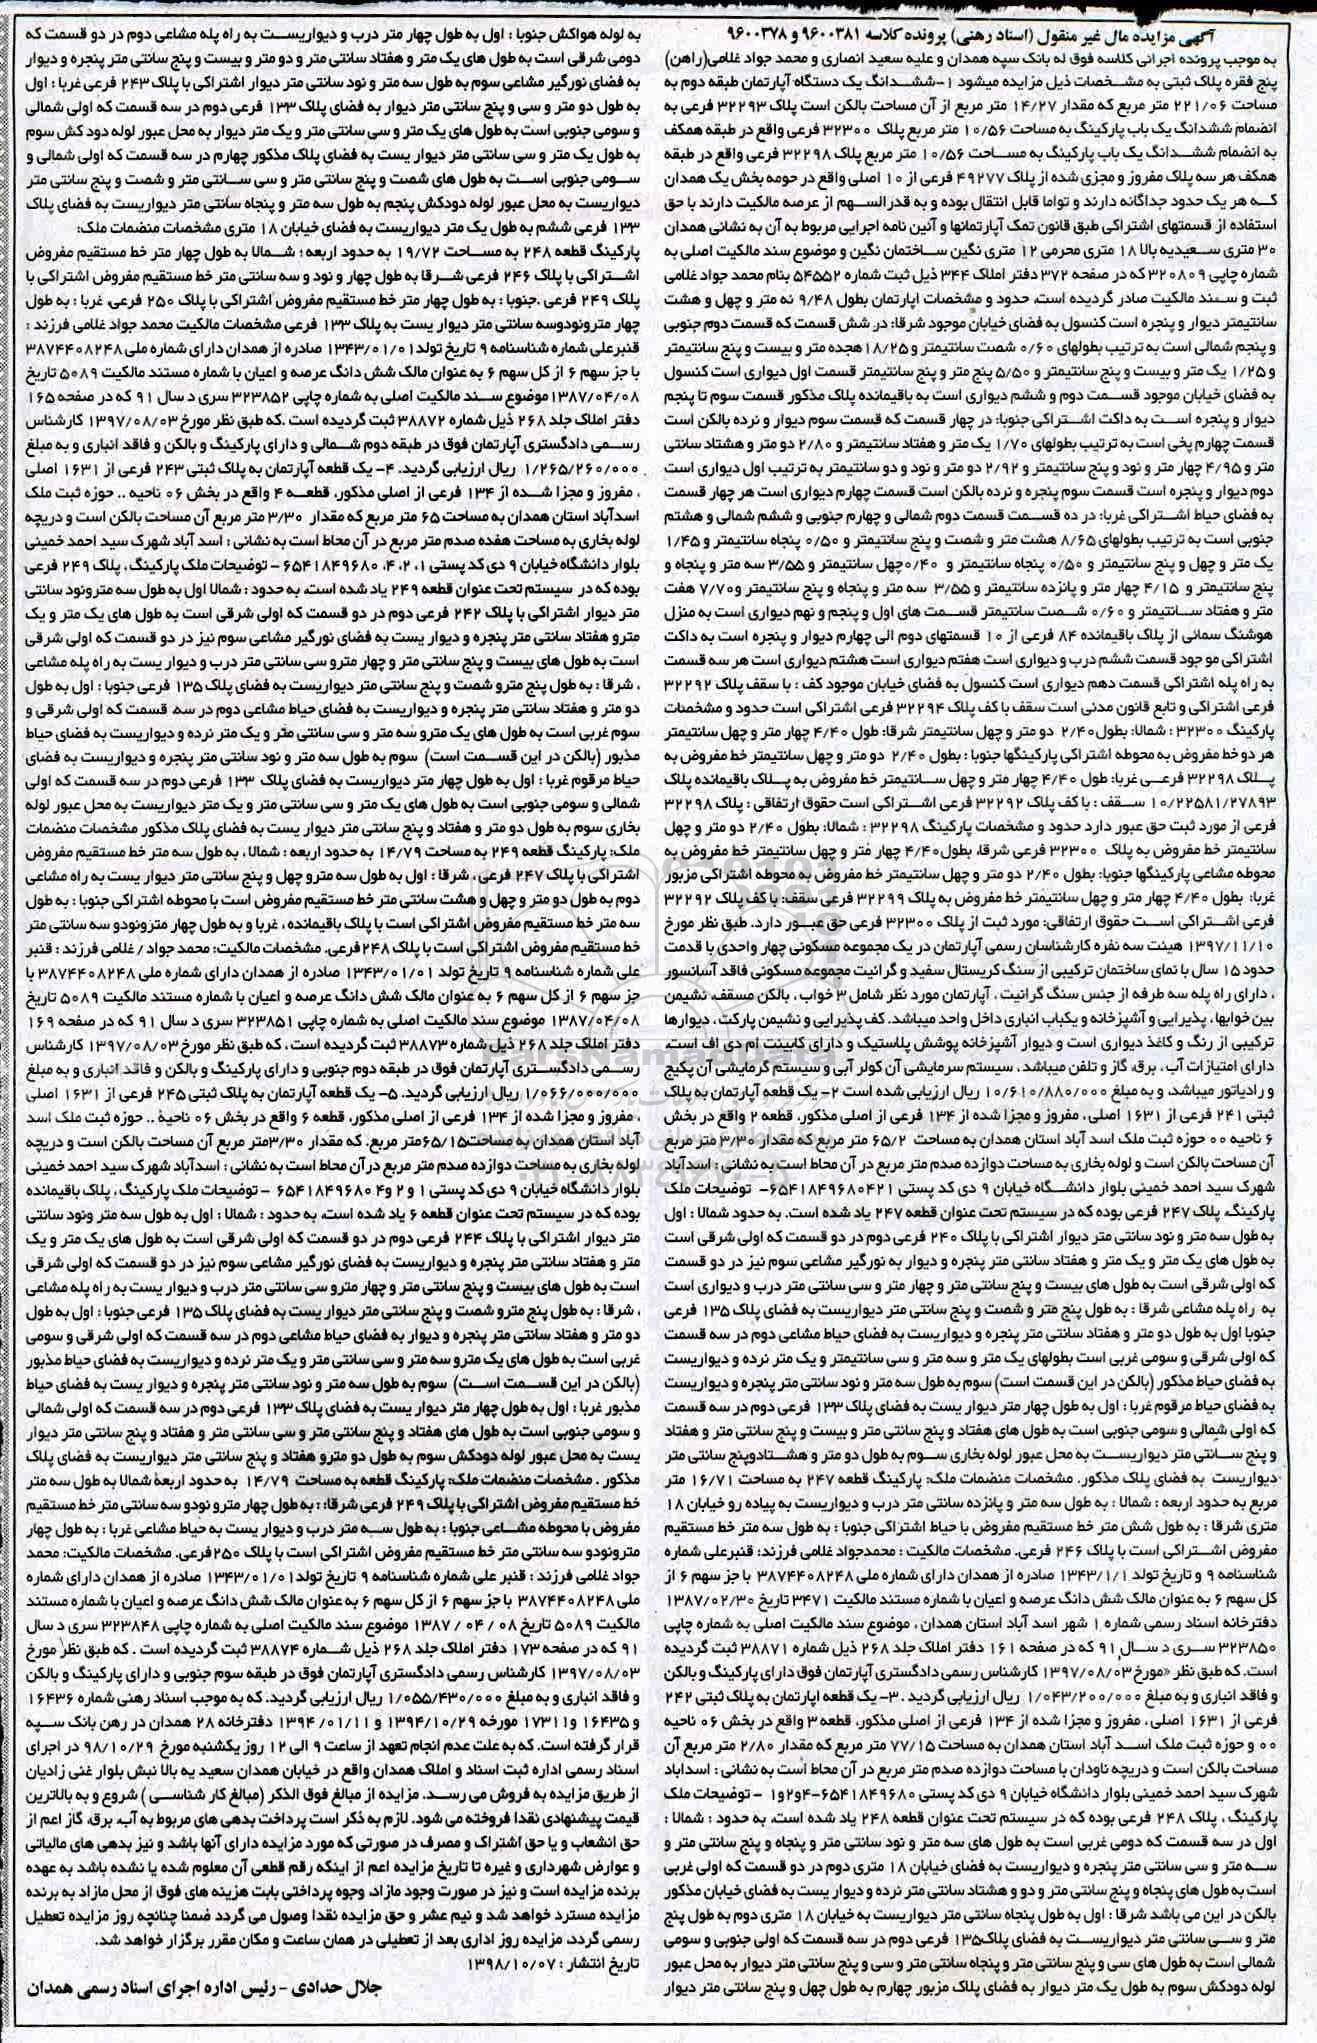 آگهی مزایده مال غیر منقول (اسناد رهنی) پرونده کلاسه ۹۶۰۰۳۸۱ و ۹۶۰۰۳۷۸
به موجب پرونده اجرائی کلاسه فوق له بانک سپه همدان و علیه سعید انصاری و محمد جواد غلامی(راهن)
پنج فقره پلاک ثبتی به مشخصات ذیل مزایده میشود ۱-ششدانگ یک دستگاه آپارتمان طبقه دوم به
مساحت ۲۲۱/۰۶ متر مربع که مقدار ۱۴/۲۷ متر مربع از آن مساحت بالکن است پلاک ۳۲۲۹۳ فرعی به
انضمام ششدانگ یک باب پارکینگ به مساحت ۱۰/۵۶ متر مربع پلاک ۳۲۳۰۰ فرعی واقع در طبقه همکف
به انضمام ششدانگ یک باب پارکینگ به مساحت ۱۰/۵۶ متر مربع پلاک ۳۲۲۹۸ فرعی واقع در طبقه
همکف هر سه پلاک مفروز و مجزی شده از پلاک ۴۹۲۷۷ فرعی از ۱۰ اصلی واقع در حومه بخش یک همدان
که هر یک حدود جداگانه دارند و تواما قابل انتقال بوده و به قدرالسهم از عرصه مالکیت دارند با حق
استفاده از قسمتهای اشتراکی طبق قانون تمک آپارتمانها و آئین نامه اجرایی مربوط به آن به نشانی همدان
۳۰ متری سعیدیه بالا ۱۸ متری محرمی ۱۲ متری نگین ساختمان نگین و موضوع سند مالکیت اصلی به
شماره چاپی ۳۲۰۸۰۹ که در صفحه ۳۷۲ دفتر املاک ۳۴۴ ذیل ثبت شماره ۵۴۵۵۲ بنام محمد جواد غلامی
ثبت و سند مالکیت صادر گردیده است، حدود و مشخصات اپارتمان بطول ۹/۴۸ نه متر و چهل و هشت
سانتیمتر دیوار و پنجره است کنسول به فضای خیابان موجود شرقا: در شش قسمت که قسمت دوم جنوبی
و پنجم شمالی است به ترتیب بطولهای ۰/۶۰ شصت سانتیمتر و ۱۸/۲۵هجده متر و بیست و پنج سانتیمتر
و ۱/۲۵ یک متر و بیست و پنج سانتیمتر و ۵/۵۰ پنج متر و پنج سانتیمتر قسمت اول دیواری است کنسول
به فضای خیابان موجود قسمت دوم و ششم دیواری است به باقیمانده پلاک مذکور قسمت سوم تا پنجم
دیوار و پنجره است به داکت اشتراکی جنوبا: در چهار قسمت که قسمت سوم دیوار و نرده بالکن است
قسمت چهارم پخی است به ترتیب بطولهای ۱/۷۰ یک متر و هفتاد سانتیمتر و ۲/۸۰ دو متر و هشتاد سانتی
متر و ۴/۹۵ چهار متر و نود و پنج سانتیمتر و ۲/۹۲ دو متر و نود و دو سانتیمتر به ترتیب اول دیواری است
دوم دیوار و پنجره است قسمت سوم پنجره و نرده بالکن است قسمت چهارم دیواری است هر چهار قسمت
به فضای حیاط اشتراکی غربا: در ده قسمت قسمت دوم شمالی و چهارم جنوبی و ششم شمالی و هشتم
جنوبی است به ترتیب بطولهای ۸/۶۵ هشت متر و شصت و پنج سانتیمتر و ۰/۵۰ پنجاه سانتیمتر و ۱/۴۵
یک متر و چهل و پنج سانتیمتر و ۰/۵۰ پنجاه سانتیمتر و ۰/۴۰چهل سانتیمتر و ۳/۵۵ سه متر و پنجاه و
پنج سانتیمتر و ۴/۱۵ چهار متر و پانزده سانتیمتر و ۳/۵۵ سه متر و پنجاه و پنج سانتیمتر و۷/۷۰ هفت
متر و هفتاد سانتیمتر و ۰/۶۰ شصت سانتیمتر قسمت های اول و پنجم و نهم دیواری است به منزل
هوشنگ سمائی از پلاک باقیمانده ۸۴ فرعی از ۱۰ قسمتهای دوم الی چهارم دیوار و پنجره است به داکت
اشتراکی موجود قسمت ششم درب و دیواری است هفتم دیواری است هشتم دیواری است هر سه قسمت
به راه پله اشتراکی قسمت دهم دیواری است کنسول به فضای خیابان موجود کف : با سقف پلاک ۳۲۲۹۲
فرعی اشتراکی و تابع قانون مدنی است سقف با کف پلاک ۳۲۲۹۴ فرعی اشتراکی است حدود و مشخصات
پارکینگ ۳۲۳۰۰ : شمالا: بطول ۲/۴۰ دو متر و چهل سانتیمتر شرقا: طول ۴/۴۰ چهار متر و چهل سانتیمتر
هر دو خط مفروض به محوطه اشتراکی پارکینگها جنوبا : بطول ۲/۴۰ دو متر و چهل سانتیمتر خط مفروض به
پلاک ۳۲۲۹۸ فرعی غربا: طول ۴/۴۰ چهار متر و چهل سانتیمتر خط مفروض به پلاک باقیمانده پلاک
۱۰/۲۲۵۸۱/۲۷۸۹۳ سقف : با کف پلاک ۳۲۲۹۲ فرعی اشتراکی است حقوق ارتفاقی : پلاک ۳۲۲۹۸
فرعی از مورد ثبت حق عبور دارد حدود و مشخصات پارکینگ ۳۲۲۹۸ : شمالا: بطول ۲/۴۰ دو متر و چهل
سانتیمتر خط مفروض به پلاک ۳۲۳۰۰ فرعی شرقا، بطول ۴/۴۰ چهار متر و چهل سانتیمتر خط مفروض به
محوطه مشاعی پارکینگها جنوبا: بطول ۲/۴۰ دو متر و چهل سانتیمتر خط مفروض به محوطه اشتراکی مزبور
غربا: بطول ۴/۴۰ چهار متر و چهل سانتیمتر خط مفروض به پلاک ۳۲۲۹۹ فرعی سقف: با کف پلاک ۳۲۲۹۲
فرعی اشتراکی است حقوق ارتفاقی: مورد ثبت از پلاک ۳۲۳۰۰ فرعی حق عبور دارد. طبق نظر مورخ
۱۳۹۷/۱۱/۱۰ هیئت سه نفره کارشناسان رسمی آپارتمان در یک مجموعه مسکونی چهار واحدی با قدمت
حدود ۱۵ سال با نمای ساختمان ترکیبی از سنگ کریستال سفید و گرانیت مجموعه مسکونی فاقد آسانسور
، دارای راه پله سه طرفه از جنس سنگ گرانیت ، آپارتمان مورد نظر شامل ۳ خواب ، بالکن مسقف، نشیمن
بین خوابها ، پذیرایی و آشپزخانه و یکباب انباری داخل واحد میباشد. کف پذیرایی و نشیمن پارکت ، دیوارها
ترکیبی از رنگ و کاغذ دیواری است و دیوار آشپزخانه پوشش پلاستیک و دارای کابینت ام دی اف است،
دارای امتیازات آب ، برق، گاز و تلفن میباشد ، سیستم سرمایشی آن کولر آبی و سیستم گرمایشی آن پکیج
و رادیاتور میباشد، و به مبلغ ۱۰/۶۱۰/۸۸۰/۰۰۰ ریال ارزیابی شده است ۲- یک قطعه آپارتمان به پلاک
ثبتی ۲۴۱ فرعی از ۱۶۳۱ اصلی ، مفروز و مجزا شده از ۱۳۴ فرعی از اصلی مذکور، قطعه ۲ واقع در بخش
۶ ناحیه ۰۰ حوزه ثبت ملک اسد آباد استان همدان به مساحت ۶۵/۲ متر مربع که مقدار ۳/۳۰ متر مربع
آن مساحت بالکن است و لوله بخاری به مساحت دوازده صدم متر مربع در آن محاط است به نشانی : اسدآباد
شهرک سید احمد خمینی بلوار دانشگاه خیابان ۹ دی کد پستی ۶۵۴۱۸۴۹۶۸۰۴۲۱- توضیحات ملک
پارکینگ، پلاک ۲۴۷ فرعی بوده که در سیستم تحت عنوان قطعه ۲۴۷ یاد شده است. به حدود شمالا : اول
به طول سه متر و نود سانتی متر دیوار اشتراکی با پلاک ۲۴۰ فرعی دوم در دو قسمت که اولی شرقی است
به طول های یک متر و یک متر و هفتاد سانتی متر پنجره و دیوار به نورگیر مشاعی سوم نیز در دو قسمت
که اولی شرقی است به طول های بیست و پنج سانتی متر و چهار متر و سی سانتی متر درب و دیواری است
به راه پله مشاعی شرقا : به طول پنج متر و شصت و پنج سانتی متر دیواریست به فضای پلاک ۱۳۵ فرعی
جنوبا اول به طول دو متر و هفتاد سانتی متر پنجره و دیواریست به فضای حیاط مشاعی دوم در سه قسمت
که اولی شرقی و سومی غربی است بطولهای یک متر و سه متر و سی سانتیمتر و یک متر نرده و دیواریست
به فضای حیاط مذکور (بالکن در این قسمت است) سوم به طول سه متر و نود سانتی متر پنجره و دیواریست
به فضای حیاط مرقوم غربا : اول به طول چهار متر دیوار یست به فضای پلاک ۱۳۳ فرعی دوم در سه قسمت
که اولی شمالی و سومی جنوبی است به طول های هفتاد و پنج سانتی متر و بیست و پنج سانتی متر و هفتاد
و پنج سانتی متر دیواریست به محل عبور لوله بخاری سوم به طول دو متر و هشتادوپنج سانتی متر
دیواریست به فضای پلاک مذکور. مشخصات منضمات ملک: پارکینگ قطعه ۲۴۷ به مساحت ۱۶/۷۱ متر
مربع به حدود اربعه : شمالا : به طول سه متر و پانزده سانتی متر درب و دیواریست به پیاده رو خیابان ۱۸
متری شرقا : به طول شش متر خط مستقیم مفروض با حیاط اشتراکی جنوبا : به طول سه متر خط مستقیم
مفروض اشتراکی است با پلاک ۲۴۶ فرعی. مشخصات مالکیت : محمدجواد غلامی فرزند: قنبرعلی شماره
شناسنامه ۹ و تاریخ تولد ۱۳۴۳/۱/۱ صادره از همدان دارای شماره ملی ۳۸۷۴۴۰۸۲۴۸ با جز سهم ۶ از
کل سهم ۶ به عنوان مالک شش دانگ عرصه و اعیان با شماره مستند مالکیت ۳۴۷۱ تاریخ ۱۳۸۷/۰۲/۳۰
دفترخانه اسناد رسمی شماره ۱ شهر اسد آباد استان همدان ، موضوع سند مالکیت اصلی به شماره چاپی
۳۲۳۸۵۰ سری د سال ۹۱ که در صفحه ۱۶۱ دفتر املاک جلد ۲۶۸ ذیل شماره ۳۸۸۷۱ ثبت گردیده
است. که طبق نظر «مورخ ۱۳۹۷/۰۸/۰۳ کارشناس رسمی دادگستری آپارتمان فوق دارای پارکینگ و بالکن
و فاقد انباری و به مبلغ ۱/۰۴۳/۲۰۰/۰۰۰ ریال ارزیابی گردید .۳- یک قطعه اپارتمان به پلاک ثبتی ۲۴۲
فرعی از ۱۶۳۱ اصلی ، مفروز و مجزا شده از ۱۳۴ فرعی از اصلی مذکور، قطعه ۳ واقع در بخش ۰۶ ناحیه
۰۰ و حوزه ثبت ملک اسد آباد استان همدان به مساحت ۷۷/۱۵ متر مربع که مقدار ۲/۸۰ متر مربع آن
مساحت بالکن است و دریچه ناودان با مساحت دوازده صدم متر مربع در آن محاط است به نشانی : اسداباد
شهرک سید احمد خمینی بلوار دانشگاه خیابان ۹ دی کد پستی ۶۵۴۱۸۴۹۶۸۰-۴و۲و۱ - توضیحات ملک
پارکینگ ، پلاک ۲۴۸ فرعی بوده که در سیستم تحت عنوان قطعه ۲۴۸ یاد شده است، به حدود : شمالا :
اول در سه قسمت که دومی غربی است به طول های سه متر و نود سانتی متر و پنجاه و پنج سانتی متر و
سه متر و سی سانتی متر پنجره و دیواریست به فضای خیابان ۱۸ متری دوم در دو قسمت که اولی غربی
است به طول های پنجاه و پنج سانتی متر و دو و هشتاد سانتی متر نرده و دیوار یست به فضای خیابان مذکور
بالکن در این می باشد شرقا : اول به طول پنجاه سانتی متر دیواریست به خیابان ۱۸ متری دوم به طول پنج
متر و سی سانتی متر دیواریست به فضای پلاک۱۳۵ فرعی دوم در سه قسمت که اولی جنوبی و سومی
شمالی است به طول های سی و پنج سانتی متر و پنجاه سانتی متر و سی و پنج سانتی متر دیوار به محل عبور
لوله دودکش سوم به طول یک متر دیوار به فضای پلاک مزبور چهارم به طول چهل و پنج سانتی متر دیوار
به لوله هواکش جنوبا : اول به طول چهار متر درب و دیواریست به راه پله مشاعی دوم در دو قسمت که
دومی شرقی است به طول های یک متر و هفتاد سانتی متر و دو متر و بیست و پنج سانتی متر پنجره و دیوار
به فضای نورگیر مشاعی سوم به طول سه متر و نود سانتی متر دیوار اشتراکی با پلاک ۲۴۳ فرعی غربا : اول
به طول دو متر و سی و پنج سانتی متر دیوار به فضای پلاک ۱۳۳ فرعی دوم در سه قسمت که اولی شمالی
و سومی جنوبی است به طول های یک متر و سی سانتی متر و یک متر دیوار به محل عبور لوله دود کش سوم
به طول یک متر و سی سانتی متر دیوار یست به فضای پلاک مذکور چهارم در سه قسمت که اولی شمالی و
سومی جنوبی است به طول های شصت و پنج سانتی متر و سی سانتی متر و شصت و پنج سانتی متر
دیواریست به محل عبور لوله دودکش پنجم به طول سه متر و پنجاه سانتی متر دیواریست به فضای پلاک
۱۳۳ فرعی ششم به طول یک متر دیواریست به فضای خیابان ۱۸ متری مشخصات منضمات ملک:
پارکینگ قطعه ۲۴۸ به مساحت ۱۹/۷۲ به حدود اربعه : شمالا به طول چهار متر خط مستقیم مفروض
اشتراکی با پلاک ۲۴۶ فرعی شرقا به طول چهار و نود و سه سانتی متر خط مستقیم مفروض اشتراکی با
پلاک ۲۴۹ فرعی .جنوبا : به طول چهار متر خط مستقیم مفروض اشتراکی با پلاک ۲۵۰ فرعی، غربا : به طول
چهار مترونودوسه سانتی متر دیوار یست به پلاک ۱۳۳ فرعی مشخصات مالکیت محمد جواد غلامی فرزند :
قنبرعلی شماره شناسنامه ۹ تاریخ تولد۱۳۴۳/۰۱/۰۱ صادره از همدان دارای شماره ملی ۳۸۷۴۴۰۸۲۴۸
با جز سهم ۶ از کل سهم ۶ به عنوان مالک شش دانگ عرصه و اعیان با شماره مستند مالکیت ۵۰۸۹ تاریخ
۱۳۸۷/۰۴/۰۸موضوع سند مالکیت اصلی به شماره چاپی ۳۲۳۸۵۲ سری د سال ۹۱ که در صفحه ۱۶۵
دفتر املاک جلد ۲۶۸ ذیل شماره ۳۸۸۷۲ ثبت گردیده است .که طبق نظر مورخ ۱۳۹۷/۰۸/۰۳ کارشناس
رسمی دادگستری آپارتمان فوق در طبقه دوم شمالی و دارای پارکینگ و بالکن و فاقد انباری و به مبلغ
۱/۲۶۵/۲۶۰/۰۰۰ ریال ارزیابی گردید. ۴- یک قطعه آپارتمان به پلاک ثبتی ۲۴۳ فرعی از ۱۶۳۱ اصلی
، مفروز و مجزا شده از ۱۳۴ فرعی از اصلی مذکور، قطعه ۴ واقع در بخش ۰۶ ناحیه .. حوزه ثبت ملک
اسدآباد استان همدان به مساحت ۶۵ متر مربع که مقدار ۳/۳۰ متر مربع آن مساحت بالکن است و دریچه
لوله بخاری به مساحت هفده صدم متر مربع در آن محاط است به نشانی : اسد آباد شهرک سید احمد خمینی
بلوار دانشگاه خیابان ۹ دی کد پستی ۱، ۲، ۴، ۶۵۴۱۸۴۹۶۸۰ - توضیحات ملک پارکینگ ، پلاک ۲۴۹ فرعی
بوده که در سیستم تحت عنوان قطعه ۲۴۹ یاد شده است، به حدود : شمالا اول به طول سه مترونود سانتی
متر دیوار اشتراکی با پلاک ۲۴۲ فرعی دوم در دو قسمت که اولی شرقی است به طول های یک متر و یک
مترو هفتاد سانتی متر پنجره و دیوار یست به فضای نورگیر مشاعی سوم نیز در دو قسمت که اولی شرقی
است به طول های بیست و پنج سانتی متر و چهار مترو سی سانتی متر درب و دیوار یست به راه پله مشاعی
، شرقا : به طول پنج مترو شصت و پنج سانتی متر دیواریست به فضای پلاک ۱۳۵ فرعی جنوبا : اول به طول
دو متر و هفتاد سانتی متر پنجره و دیواریست به فضای حیاط مشاعی دوم در سه، قسمت که اولی شرقی و
سوم غربی است به طول های یک مترو سه متر و سی سانتی متر و یک متر نرده و دیواریست به فضای حیاط
مذبور (بالکن در این قسمت است) سوم به طول سه متر و نود سانتی متر پنجره و دیواریست به فضای
حیاط مرقوم غربا : اول به طول چهار متر دیواریست به فضای پلاک ۱۳۳ فرعی دوم در سه قسمت که اولی
شمالی و سومی جنوبی است به طول های یک متر و سی سانتی متر و یک متر دیواریست به محل عبور لوله
بخاری سوم به طول دو متر و هفتاد و پنج سانتی متر دیوار یست به فضای پلاک مذکور مشخصات منضمات
ملک: پارکینگ قطعه ۲۴۹ به مساحت ۱۴/۷۹ به حدود اربعه : شمالا ، به طول سه متر خط مستقیم مفروض
اشتراکی با پلاک ۲۴۷ فرعی ، شرقا : اول به طول سه مترو چهل و پنج سانتی متر دیوار یست به راه مشاعی
دوم به طول دو متر و چهل و هشت سانتی متر خط مستقیم مفروض است با محوطه اشتراکی جنوبا : به طول
سه متر خط مستقیم مفروض اشتراکی است با پلاک باقیمانده ، غربا و به طول چهار مترونودو سه سانتی متر
خط مستقیم مفروض اشتراکی است با پلاک ۲۴۸ فرعی. مشخصات مالکیت: محمد جواد / غلامی فرزند : قنبر
علی شماره شناسنامه ۹ تاریخ تولد ۱۳۴۳/۰۱/۰۱ صادره از همدان دارای شماره ملی ۳۸۷۴۴۰۸۲۴۸ با
جز سهم ۶ از کل سهم ۶ به عنوان مالک شش دانگ عرصه و اعیان با شماره مستند مالکیت ۵۰۸۹ تاریخ
۱۳۸۷/۰۴/۰۸ موضوع سند مالکیت اصلی به شماره چاپی ۳۲۳۸۵۱ سری د سال ۹۱ که در صفحه ۱۶۹
دفتر املاک جلد ۲۶۸ ذیل شماره ۳۸۸۷۳ ثبت گردیده است ، که طبق نظر مورخ ۱۳۹۷/۰۸/۰۳ کارشناس
رسمی دادگستری آپارتمان فوق در طبقه دوم جنوبی و دارای پارکینگ و بالکن و فاقد انباری و به مبلغ
۱/۰۶۶/۰۰۰/۰۰۰ ریال ارزیابی گردید. ۵- یک قطعه آپارتمان به پلاک ثبتی ۲۴۵ فرعی از ۱۶۳۱ اصلی
، مفروز و مجزا شده از ۱۳۴ فرعی از اصلی مذکور، قطعه ۶ واقع در بخش ۰۶ ناحیه .. حوزه ثبت ملک اسد
آباد استان همدان به مساحت۶۵/۱۵متر مربع. که مقدار ۳/۳۰متر مربع آن مساحت بالکن است و دریچه
لوله بخاری به مساحت دوازده صدم متر مربع درآن محاط است به نشانی : اسدآباد شهرک سید احمد خمینی
بلوار دانشگاه خیابان ۹ دی کد پستی ۱ و ۲ و۴ ۶۵۴۱۸۴۹۶۸۰ - توضیحات ملک پارکینگ ، پلاک باقیمانده
بوده که در سیستم تحت عنوان قطعه ۶ یاد شده است، به حدود : شمالا : اول به طول سه متر ونود سانتی
متر دیوار اشتراکی با پلاک ۲۴۴ فرعی دوم در دو قسمت که اولی شرقی است به طول های یک متر و یک
متر و هفتاد سانتی متر پنجره و دیواریست به فضای نورگیر مشاعی سوم نیز در دو قسمت که اولی شرقی
است به طول های بیست و پنج سانتی متر و چهار مترو سی سانتی متر درب و دیوار یست به راه پله مشاعی
، شرقا : به طول پنج مترو شصت و پنج سانتی متر دیوار یست به فضای پلاک ۱۳۵ فرعی جنوبا : اول به طول
دو متر و هفتاد سانتی متر پنجره و دیوار به فضای حیاط مشاعی دوم در سه قسمت که اولی شرقی و سومی
غربی است به طول های یک مترو سه متر و سی سانتی متر و یک متر نرده و دیواریست به فضای حیاط مذبور
(بالکن در این قسمت است) سوم به طول سه متر و نود سانتی متر پنجره و دیوار یست به فضای حیاط
مذبور غربا : اول به طول چهار متر دیوار یست به فضای پلاک ۱۳۳ فرعی دوم در سه قسمت که اولی شمالی
و سومی جنوبی است به طول های هفتاد و پنج سانتی متر و سی سانتی متر و هفتاد و پنج سانتی متر دیوار
یست به محل عبور لوله دودکش سوم به طول دو مترو هفتاد و پنج سانتی متر دیواریست به فضای پلاک
مذکور . مشخصات منضمات ملک: پارکینگ قطعه به مساحت ۱۴/۷۹ به حدود اربعهٔ شمالا به طول سه متر
خط مستقیم مفروض اشتراکی با پلاک ۲۴۹ فرعی شرقا: : به طول چهار مترو نودو سه سانتی متر خط مستقیم
مفروض با محوطه مشاعی جنوبا : به طول سه متر درب و دیوار یست به حیاط مشاعی غربا : به طول چهار
مترونودو سه سانتی متر خط مستقیم مفروض اشتراکی است با پلاک ۲۵۰فرعی. مشخصات مالکیت: محمد
جواد غلامی فرزند : قنبر علی شماره شناسنامه ۹ تاریخ تولد۱۳۴۳/۰۱/۰۱ صادره از همدان دارای شماره
ملی ۳۸۷۴۴۰۸۲۴۸ با جز سهم ۶ از کل سهم ۶ به عنوان مالک شش دانگ عرصه و اعیان با شماره مستند
مالکیت ۵۰۸۹ تاریخ ۰۸ / ۰۴ / ۱۳۸۷ موضوع سند مالکیت اصلی به شماره چاپی ۳۲۳۸۴۸ سری د سال
۹۱ که در صفحه ۱۷۳ دفتر املاک جلد ۲۶۸ ذیل شماره ۳۸۸۷۴ ثبت گردیده است . که طبق نظر مورخ
۱۳۹۷/۰۸/۰۳ کارشناس رسمی دادگستری آپارتمان فوق در طبقه سوم جنوبی و دارای پارکینگ و بالکن
و فاقد انباری و به مبلغ ۱/۰۵۵/۴۳۰/۰۰۰ ریال ارزیابی گردید. که به موجب اسناد رهنی شماره ۱۶۴۳۶
و ۱۶۴۳۵ و۱۷۳۱۱ مورخه ۱۳۹۴/۱۰/۲۹ و ۱۳۹۴/۰۱/۱۱ دفترخانه ۲۸ همدان در رهن بانک سپه
قرار گرفته است. که به علت عدم انجام تعهد از ساعت ۹ الی ۱۲ روز یکشنبه مورخ ۹۸/۱۰/۲۹ در اجرای
اسناد رسمی اداره ثبت اسناد و املاک همدان واقع در خیابان همدان سعید یه بالا نبش بلوار غنی زادیان
از طریق مزایده به فروش می رسد. مزایده از مبالغ فوق الذکر (مبالغ کار شناسی ) شروع و به بالاترین
قیمت پیشنهادی نقدا فروخته می شود. لازم به ذکر است پرداخت بدهی های مربوط به آب، برق، گاز اعم از
حق انشعاب و یا حق اشتراک و مصرف در صورتی که مورد مزایده دارای آنها باشد و نیز بدهی های مالیاتی
و عوارض شهرداری و غیره تا تاریخ مزایده اعم از اینکه رقم قطعی آن معلوم شده یا نشده باشد به عهده
برنده مزایده است و نیز در صورت وجود مازاد، وجوه پرداختی بابت هزینه های فوق از محل مازاد به برنده
مزایده مسترد خواهد شد و نیم عشر و حق مزایده نقدا وصول می گردد ضمنا چنانچه روز مزایده تعطیل
رسمی گردد، مزایده روز اداری بعد از تعطیلی در همان ساعت و مکان مقرر برگزار خواهد شد.
تاریخ انتشار : ۱۳۹۸/۱۰/۰۷
جلال حدادی - رئیس اداره اجرای اسناد رسمی همدان